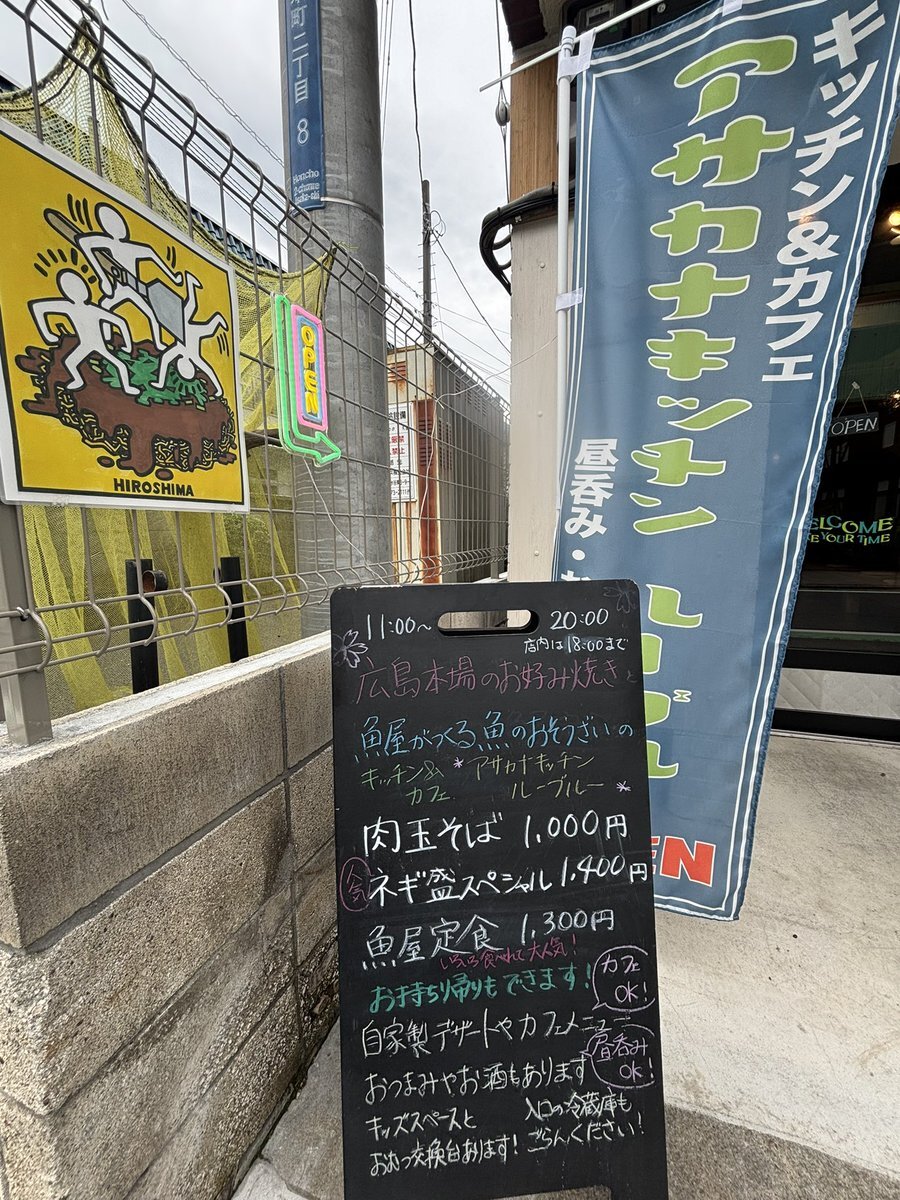 町二丁目 8
Honcho
2-chome
HIROSHIMA
OPEN
キッチン&カフェ
アサカナキッチン ルーブル
昼呑み・
EN
OPEN
ELCOME
E YOUR TIME
11:00〜 20:00
店内は18:00まで
広島本場のお好み焼きと
魚屋がつくる魚のおそうざいの
キッチン& *アサカナキッチン
カフェ ルーブルー*
肉玉そば 1,000円
人気 ネギ盛スペシャル 1,400円
魚屋定食 1,300円
いろいろ食べれて大人気!
お持ち帰りもできます!
カフェ
OK!
自家製デザートやカフェメニュー
昼呑み
OK!
おつまみやお酒もあります
キッズスペースと 入口の冷蔵庫も
おむつ交換台あります! ごらんください!